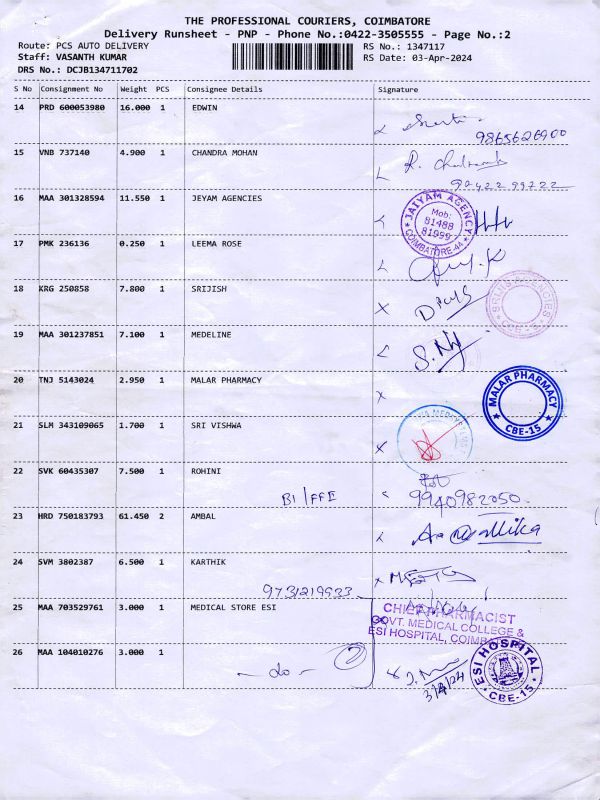 THE PROFESSIONAL COURIERS, COIMBATORE
Delivery Runsheet - PNP - Phone No.:0422-3505555 - Page No.:2
Route: PCS AUTO DELIVERY
RS No.: 1347117
Staff: VASANTH KUMAR
RS Date: 03-Apr-2024
DRS No.: DCJB134711702
S No Consignment No Weight PCS Consignee Details Signature
14 PRD 600053980 16.000 1 EDWIN
9865626900
15 VNB 737140 4.900 1 CHANDRA MOHAN
90422 99722
16 MAA 301328594 11.550 1 JEYAM AGENCIES
JAIYAM AGENCY
Mob:
81488
81999
COIMBATORE-44
17 PMK 236136 0.250 1 LEEMA ROSE
18 KRG 250858 7.800 1 SRIJISH
AGENCIES
CBE-
19 MAA 301237851 7.100 1 MEDELINE
20 TNJ 5143024 2.950 1 MALAR PHARMACY
MALAR PHARMACY
CBE-15
21 SLM 343109065 1.700 1 SRI VISHWA
22 SVK 60435307 7.500 1 ROHINI
BI/FFE
9940982050
23 HRD 750183793 61.450 2 AMBAL
24 SVM 3802387 6.500 1 KARTHIK
9731219933
25 MAA 703529761 3.000 1 MEDICAL STORE ESI
CHIEF PHARMACIST
GOVT. MEDICAL COLLEGE &
ESI HOSPITAL, COIMB
26 MAA 104010276 3.000 1
- do -
2
3/4/24
ESI HOSPITAL
CBE-15